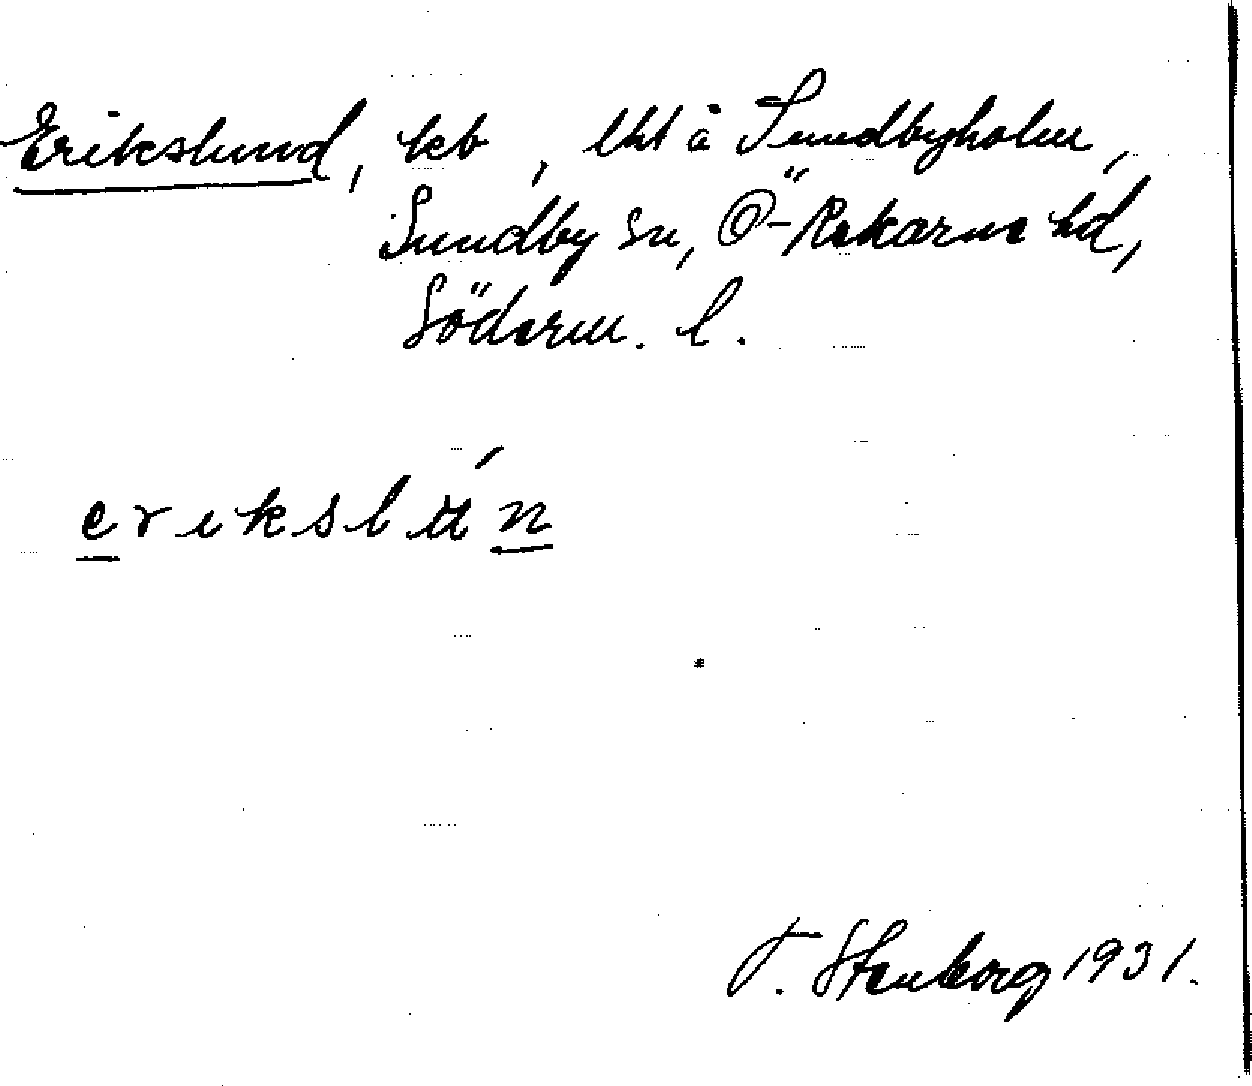 Erikslund, leb, lht å Sundbyholm,
Sundby sn, Ö-Rekarne hd,
Söderm. l.
erikslun
T. Stenborg 1931.